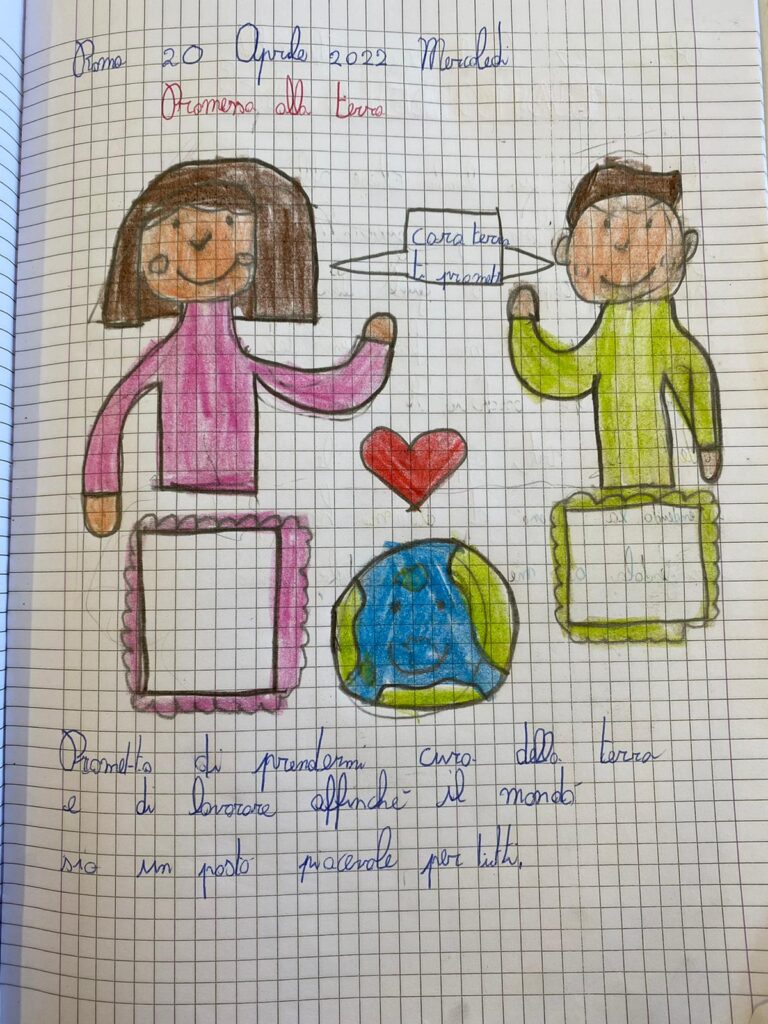 Roma 20 Aprile 2022 Mercoledì
Promessa alla terra
cara terra
ti promet
Prometto di prendermi cura della terra
e di lavorare affinché il mondo
sia un posto piacevole per tutti.